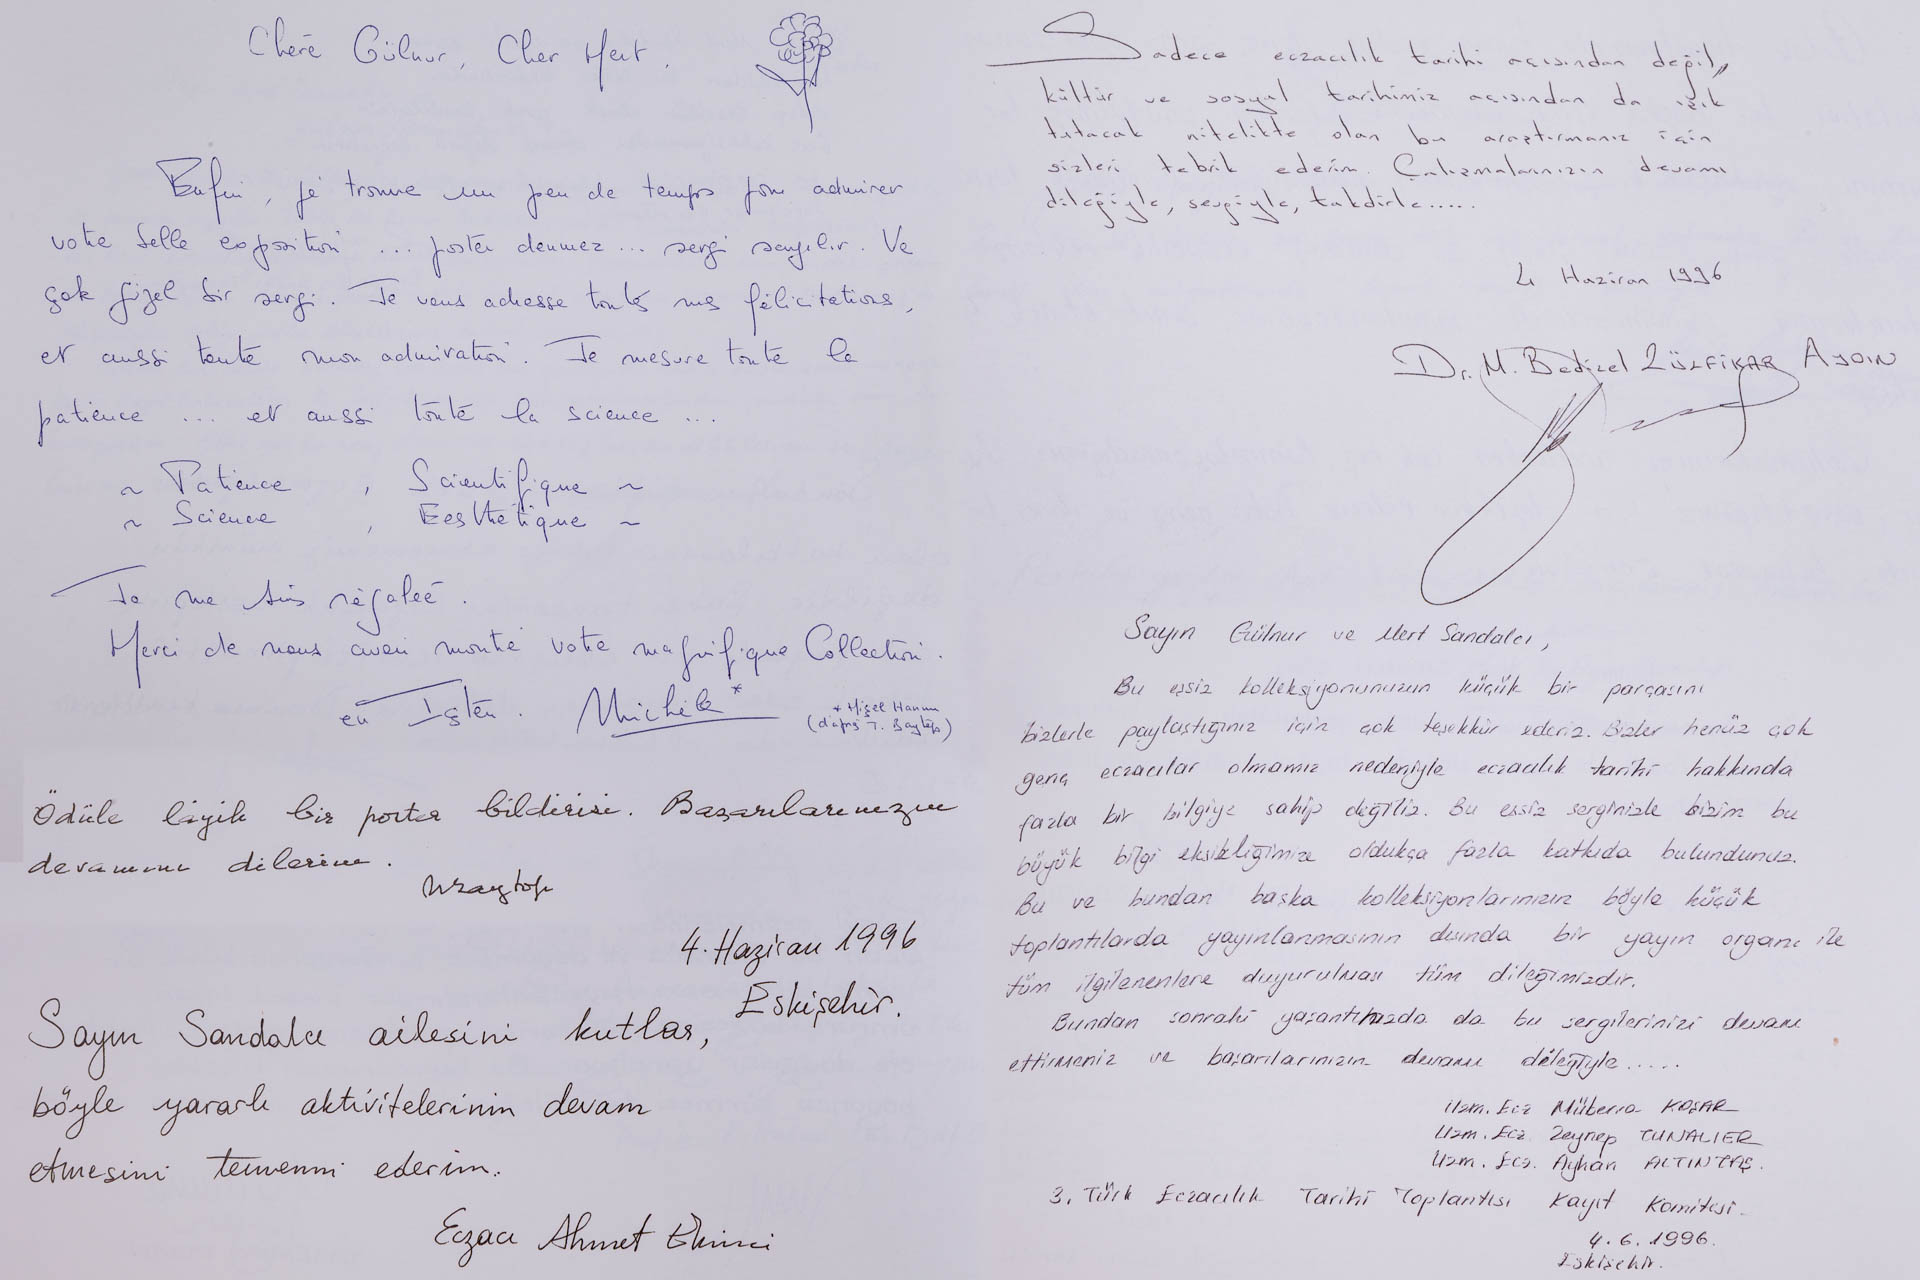 Chère Gülnur, Cher Mert.
Enfin, je trouve un peu de temps pour admirer
votre belle exposition ... poster denmez ... sergi sayılır. Ve
çok güzel bir sergi. Je vous adresse toutes mes félicitations,
et aussi toute mon admiration. Je mesure toute la
patience ... et aussi toute la science ...
~ Patience , Scientifique ~
~ Science , Eesthétique ~
Je me suis régalée.
Merci de nous avoir montré votre magnifique Collection.
en Michèle*
* Mişel Hanım
(d'après T. Baytop)
Ödüle layık bir poster bildirisi. Başarılarınızın
devamını dilerim.
4. Haziran 1996
Eskişehir.
Sayın Sandalcı ailesini kutlar,
böyle yararlı aktivitelerinin devam
etmesini temenni ederim.
Eczacı Ahmet Ekinci
Sadece eczacılık tarihi açısından değil,
kültür ve sosyal tarihimiz açısından da ışık
tutacak nitelikte olan bu araştırmanız için
sizleri tebrik ederim. Çalışmalarınızın devamı
dileğiyle, sevgiyle, takdirle.....
4 Haziran 1996
Dr. M. Bedizel ZÜLFİKAR AYDIN
Sayın Gülnur ve Mert Sandalcı,
Bu eşsiz kolleksiyonunuzun küçük bir parçasını
bizlerle paylaştığınız için çok teşekkür ederiz. Bizler henüz çok
genç eczacılar olmamız nedeniyle eczacılık tarihi hakkında
fazla bir bilgiye sahip değiliz. Bu eşsiz serginizle bizim bu
büyük bilgi eksikliğimize oldukça fazla katkıda bulundunuz.
Bu ve bundan başka kolleksiyonlarınızın böyle küçük
toplantılarda yayınlanmasının dışında bir yayın organı ile
tüm ilgilenenlere duyurulması tüm dileğimizdir.
Bundan sonraki yaşantınızda da bu sergilerinizi devam
ettirmeniz ve başarılarınızın devamı dileğiyle.....
Uzm. Ecz Müberra KOŞAR
Uzm. Ecz. Zeynep TUNALIER
Uzm. Ecz. Ayhan ALTINTAŞ.
3. Türk Eczacılık Tarihi Toplantısı Kayıt Komitesi.
4.6.1996.
Eskişehir.